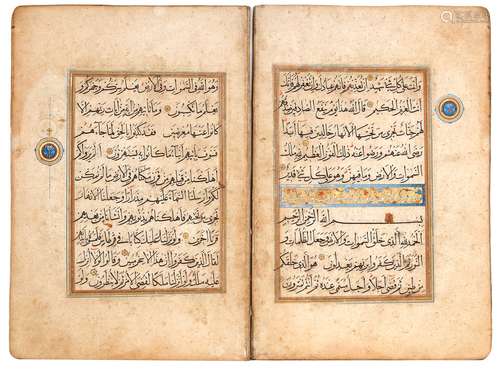 وأنت على كل شيء شهيد إن تعذبهم فإنهم عبادك وإن تغفر لهم فإنك
أنت العزيز الحكيم قال الله هذا يوم ينفع الصادقين صدقهم
لهم جنات تجري من تحتها الأنهار خالدين فيها أبدا
رضي الله عنهم ورضوا عنه ذلك الفوز العظيم لله ملك
السموات والأرض وما فيهن وهو على كل شيء قدير
بسم الله الرحمن الرحيم
الحمد لله الذي خلق السموات والأرض وجعل الظلمات و
النور ثم الذين كفروا بربهم يعدلون هو الذي خلقكم
من طين ثم قضى أجلا وأجل مسمى عنده ثم أنتم تمترون
وهو الله في السموات وفي الأرض يعلم سركم وجهركم و
يعلم ما تكسبون وما تأتيهم من آية من آيات ربهم إلا
كانوا عنها معرضين فقد كذبوا بالحق لما جاءهم
فسوف يأتيهم أنباء ما كانوا به يستهزؤن ألم يروا كم
أهلكنا من قبلهم من قرن مكناهم في الأرض ما لم نمكن
لكم وأرسلنا السماء عليهم مدرارا وجعلنا الأنهار
تجري من تحتهم فأهلكناهم بذنوبهم وأنشأنا من بعدهم
قرنا آخرين ولو نزلنا عليك كتابا في قرطاس فلمسوه بأيديهم
لقال الذين كفروا إن هذا إلا سحر مبين وقالوا لولا أنزل
عليه ملك ولو أنزلنا ملكا لقضي الأمر ثم لا ينظرون